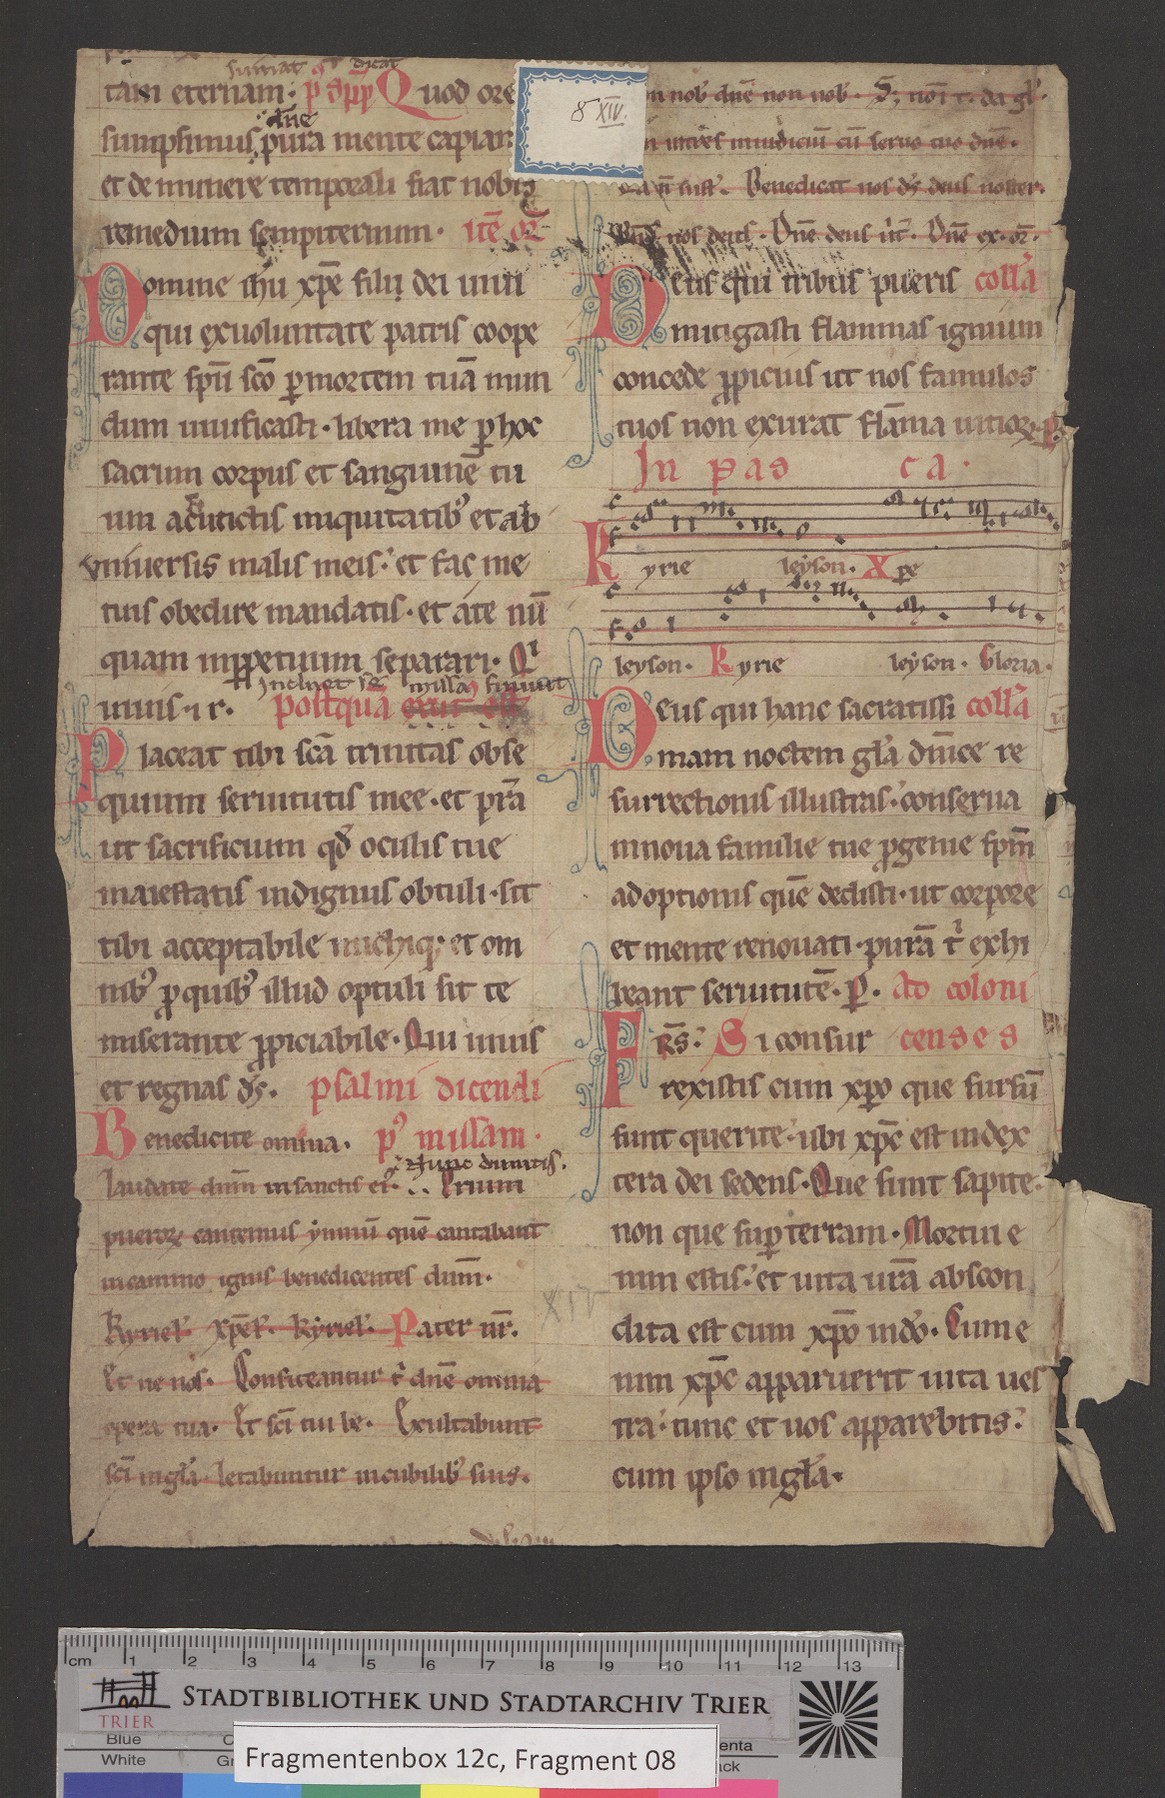 sumat qd dicat
tam eternam. p spp Quod ore
dne
sumpsimus pura mente capiam
et de munere temporali fiat nobis
remedium sempiternum. Ite or
Domine ihu xpe filii dei uiui
qui ex uoluntate patris coope
rante spu sco p mortem tuā mun
dum uiuificasti. libera me p hoc
sacrum corpus et sanguinē tu
um a cūtictis iniquitatib; et ab
vniuersis malis meis: et fac me
tuis obedire mandatis. et a te nū
quam inppetuum separari. Qi
inclinet se missa finiuit
uiuis i r. postquā
Placeat tibi scā trinitas obse
quium seruitutis mee. et prā
ut sacrificium qd oculis tue
maiestatis indignus obtuli. sit
tibi acceptabile michiq; et om
nib; p quib; illud optuli sit te
miserante ppiciabile. Qui uiuis
et regnas ds. psalmi dicendi
Benedicite omnia. p missam.
Nunc dimitis.
Laudate dnm in sanctis ei. Trium
pueror cantemus ymnū quē cantabant
in camino ignis benedicentes dnm.
Kyriel. xpel. kyriel. Pater nr.
Et ne nos. Confiteantur t dne omnia
opera tua. Et sci tui be. Exultabunt
sci in gla. letabuntur in cubilib; suis.
8 XIV.
non nob dne non nob. S; noī t. da gl.
intres in iudiciū cū seruo tuo dne.
Benedicat nos ds deus noster.
nos deus. Dne deus uirt. Dne ex. or.
Deus qui tribus pueris collā
mitigasti flammas ignium
concede ppicius ut nos famulos
tuos non exurat flāma uitior. p.
In pas ca.
Kyrie leyson. Xpe
leyson. Kyrie leyson. Gloria.
Deus qui hanc sacratissi collā
mam noctem gla dnice re
surrectionis illustras: conserua
in noua familie tue pgenie spm
adoptionis quē dedisti. ut corpore
et mente renouati. purā t exhi
beant seruitutē. p. Ad coloni
Frs: Si consur censes
rexistis cum xpo que sursū
sunt querite: ubi xpc est in dex
tera dei sedens. Que sunt sapite:
non que sup terram. Mortui e
nim estis: et uita urā abscon
dita est cum xpo in dō. Cum e
nim xpc apparuerit uita ues
tra: tunc et uos apparebitis:
cum ipso in gla.
XIV
cm 1 2 3 4 5 6 7 8 9 10 11 12 13
TRIER
STADTBIBLIOTHEK UND STADTARCHIV TRIER
Blue
White
Fragmentenbox 12c, Fragment 08